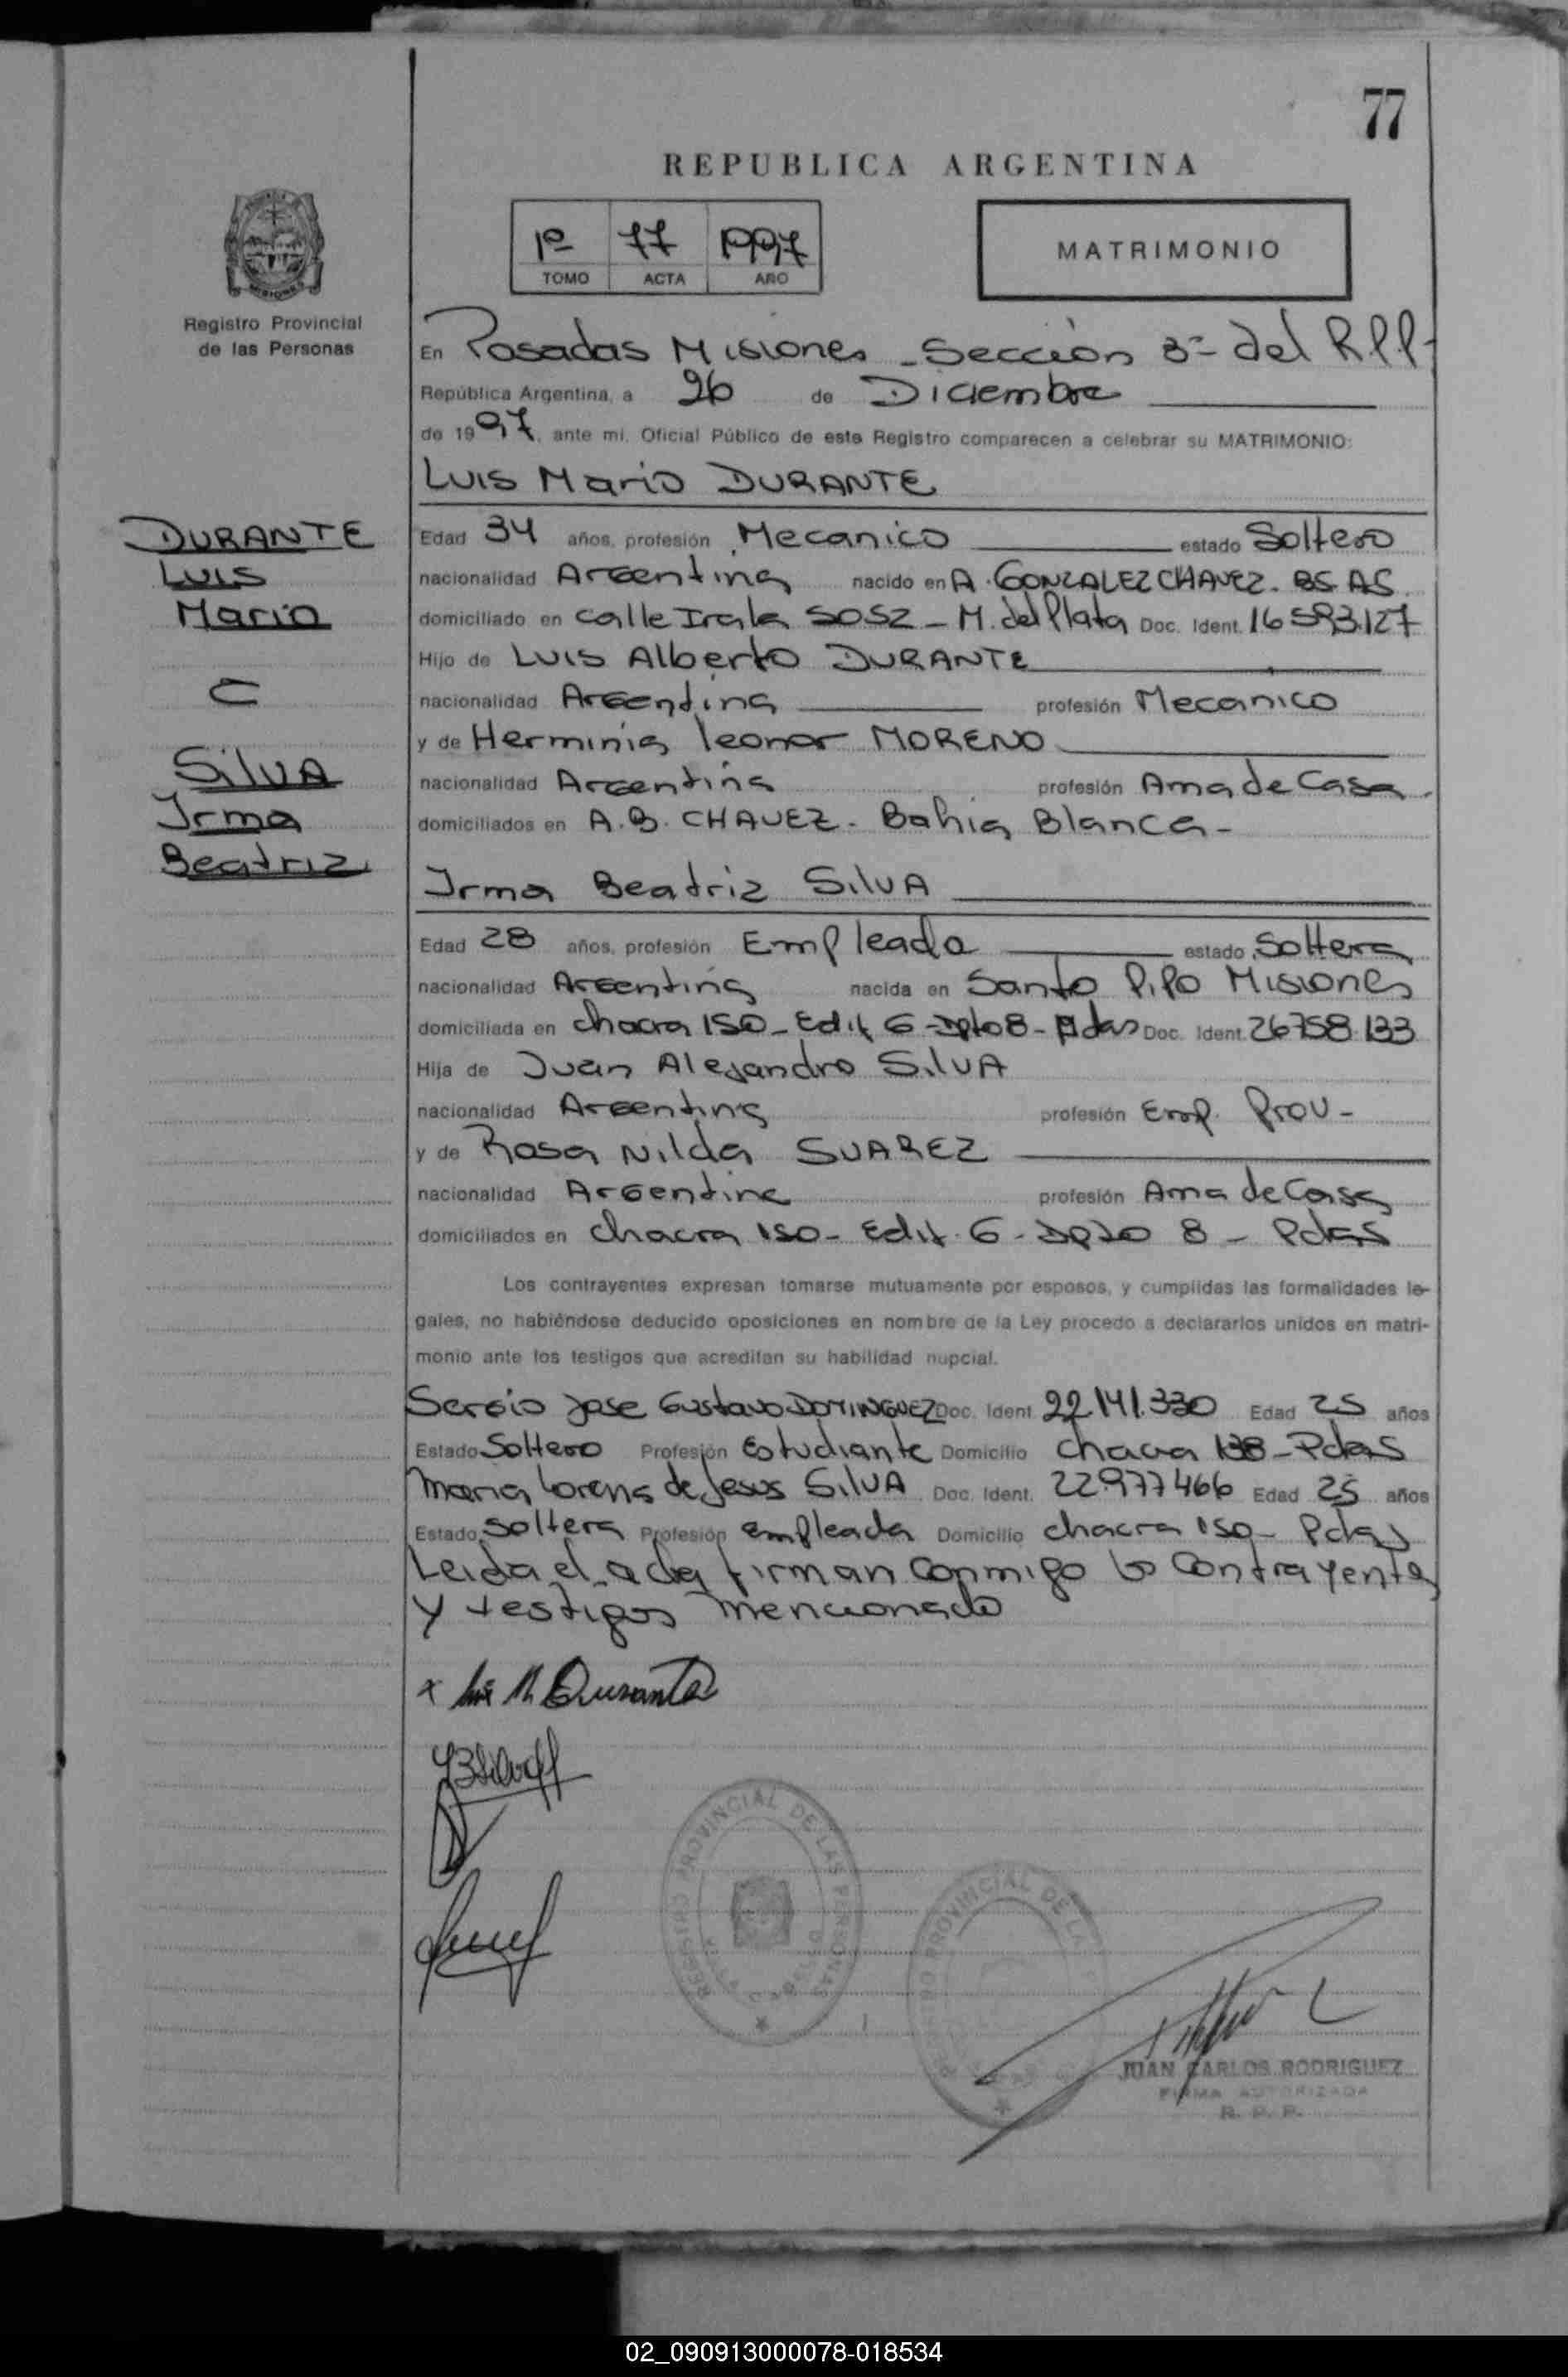 77
REPUBLICA ARGENTINA
1º 77 1997
TOMO ACTA AÑO
MATRIMONIO
Registro Provincial
de las Personas
En Posadas Misiones - Sección 3ª del R.P.P.
República Argentina, a 26 de Diciembre
de 1997, ante mí, Oficial Público de este Registro comparecen a celebrar su MATRIMONIO:
Luis Mario DURANTE
DURANTE
Luis
Mario
C
SilVA
Irma
Beatriz
Edad 34 años, profesión Mecanico estado Soltero
nacionalidad Argentina nacido en A. GONZALEZ CHAVEZ. BS AS.
domiciliado en calle Irala 5052 - M. del Plata Doc. Ident. 16.593.127
Hijo de Luis Alberto DURANTE
nacionalidad Argentina profesión Mecanico
y de Herminia leonor MORENO
nacionalidad Argentina profesión Ama de Casa.
domiciliados en A.G. CHAVEZ - Bahia Blanca -
Irma Beatriz SilVA
Edad 28 años, profesión Empleada estado Soltera
nacionalidad Argentina nacida en Santo Pipo Misiones
domiciliada en chacra 150 - Edif 6 - Dpto 8 - Pdas Doc. Ident. 26758.133
Hija de Juan Alejandro SilVA
nacionalidad Argentina profesión Emp. Prov -
y de Rosa Nilda SUAREZ
nacionalidad Argentina profesión Ama de Casa
domiciliados en chacra 150 - Edif. 6 - Dpto 8 - Pdas
Los contrayentes expresan tomarse mutuamente por esposos, y cumplidas las formalidades le-
gales, no habiéndose deducido oposiciones en nombre de la Ley procedo a declararlos unidos en matri-
monio ante los testigos que acreditan su habilidad nupcial.
Sergio Jose Gustavo DOMINGUEZ Doc. Ident. 22.141.330 Edad 25 años
Estado Soltero Profesión Estudiante Domicilio chacra 138 - Pdas
Maria Lorena de Jesus SilVA Doc. Ident. 22.977466 Edad 25 años
Estado Soltera Profesión empleada Domicilio chacra 150 - Pdas
Leida el acta firman conmigo los Contrayentes
y testigos mencionado
x Luis M. Durante
REGISTRO PROVINCIAL DE LAS PERSONAS
REGISTRO PROVINCIAL DE LA
JUAN CARLOS RODRIGUEZ
FIRMA AUTORIZADA
R. P. P.
02_090913000078-018534